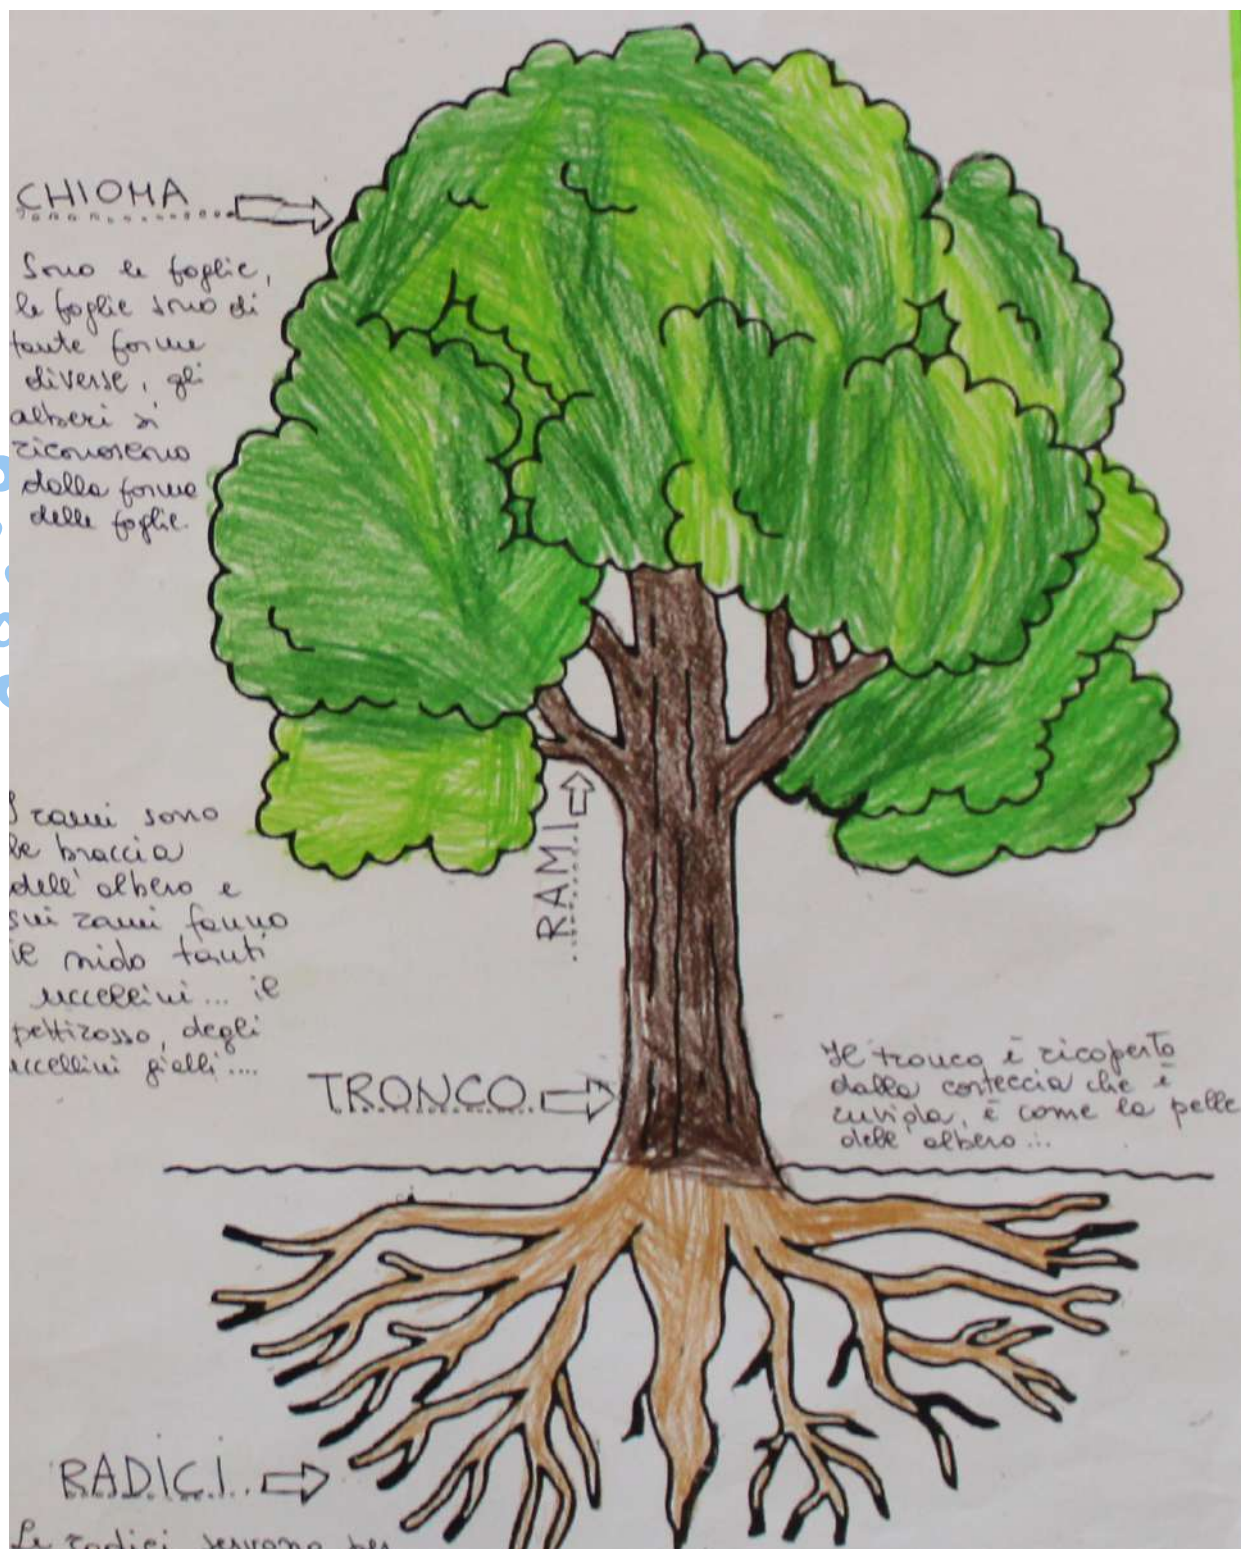 CHIOMA
Sono le foglie,
le foglie sono di
tante forme
diverse, gli
alberi si
riconoscono
dalla forma
delle foglie.
I rami sono
le braccia
dell'albero e
sui rami fanno
il nido tanti
uccellini... il
pettirosso, degli
uccellini gialli....
RAMI
TRONCO
Il tronco è ricoperto
dalla corteccia che è
ruvida, è come la pelle
dell'albero...
RADICI
Le radici servono per